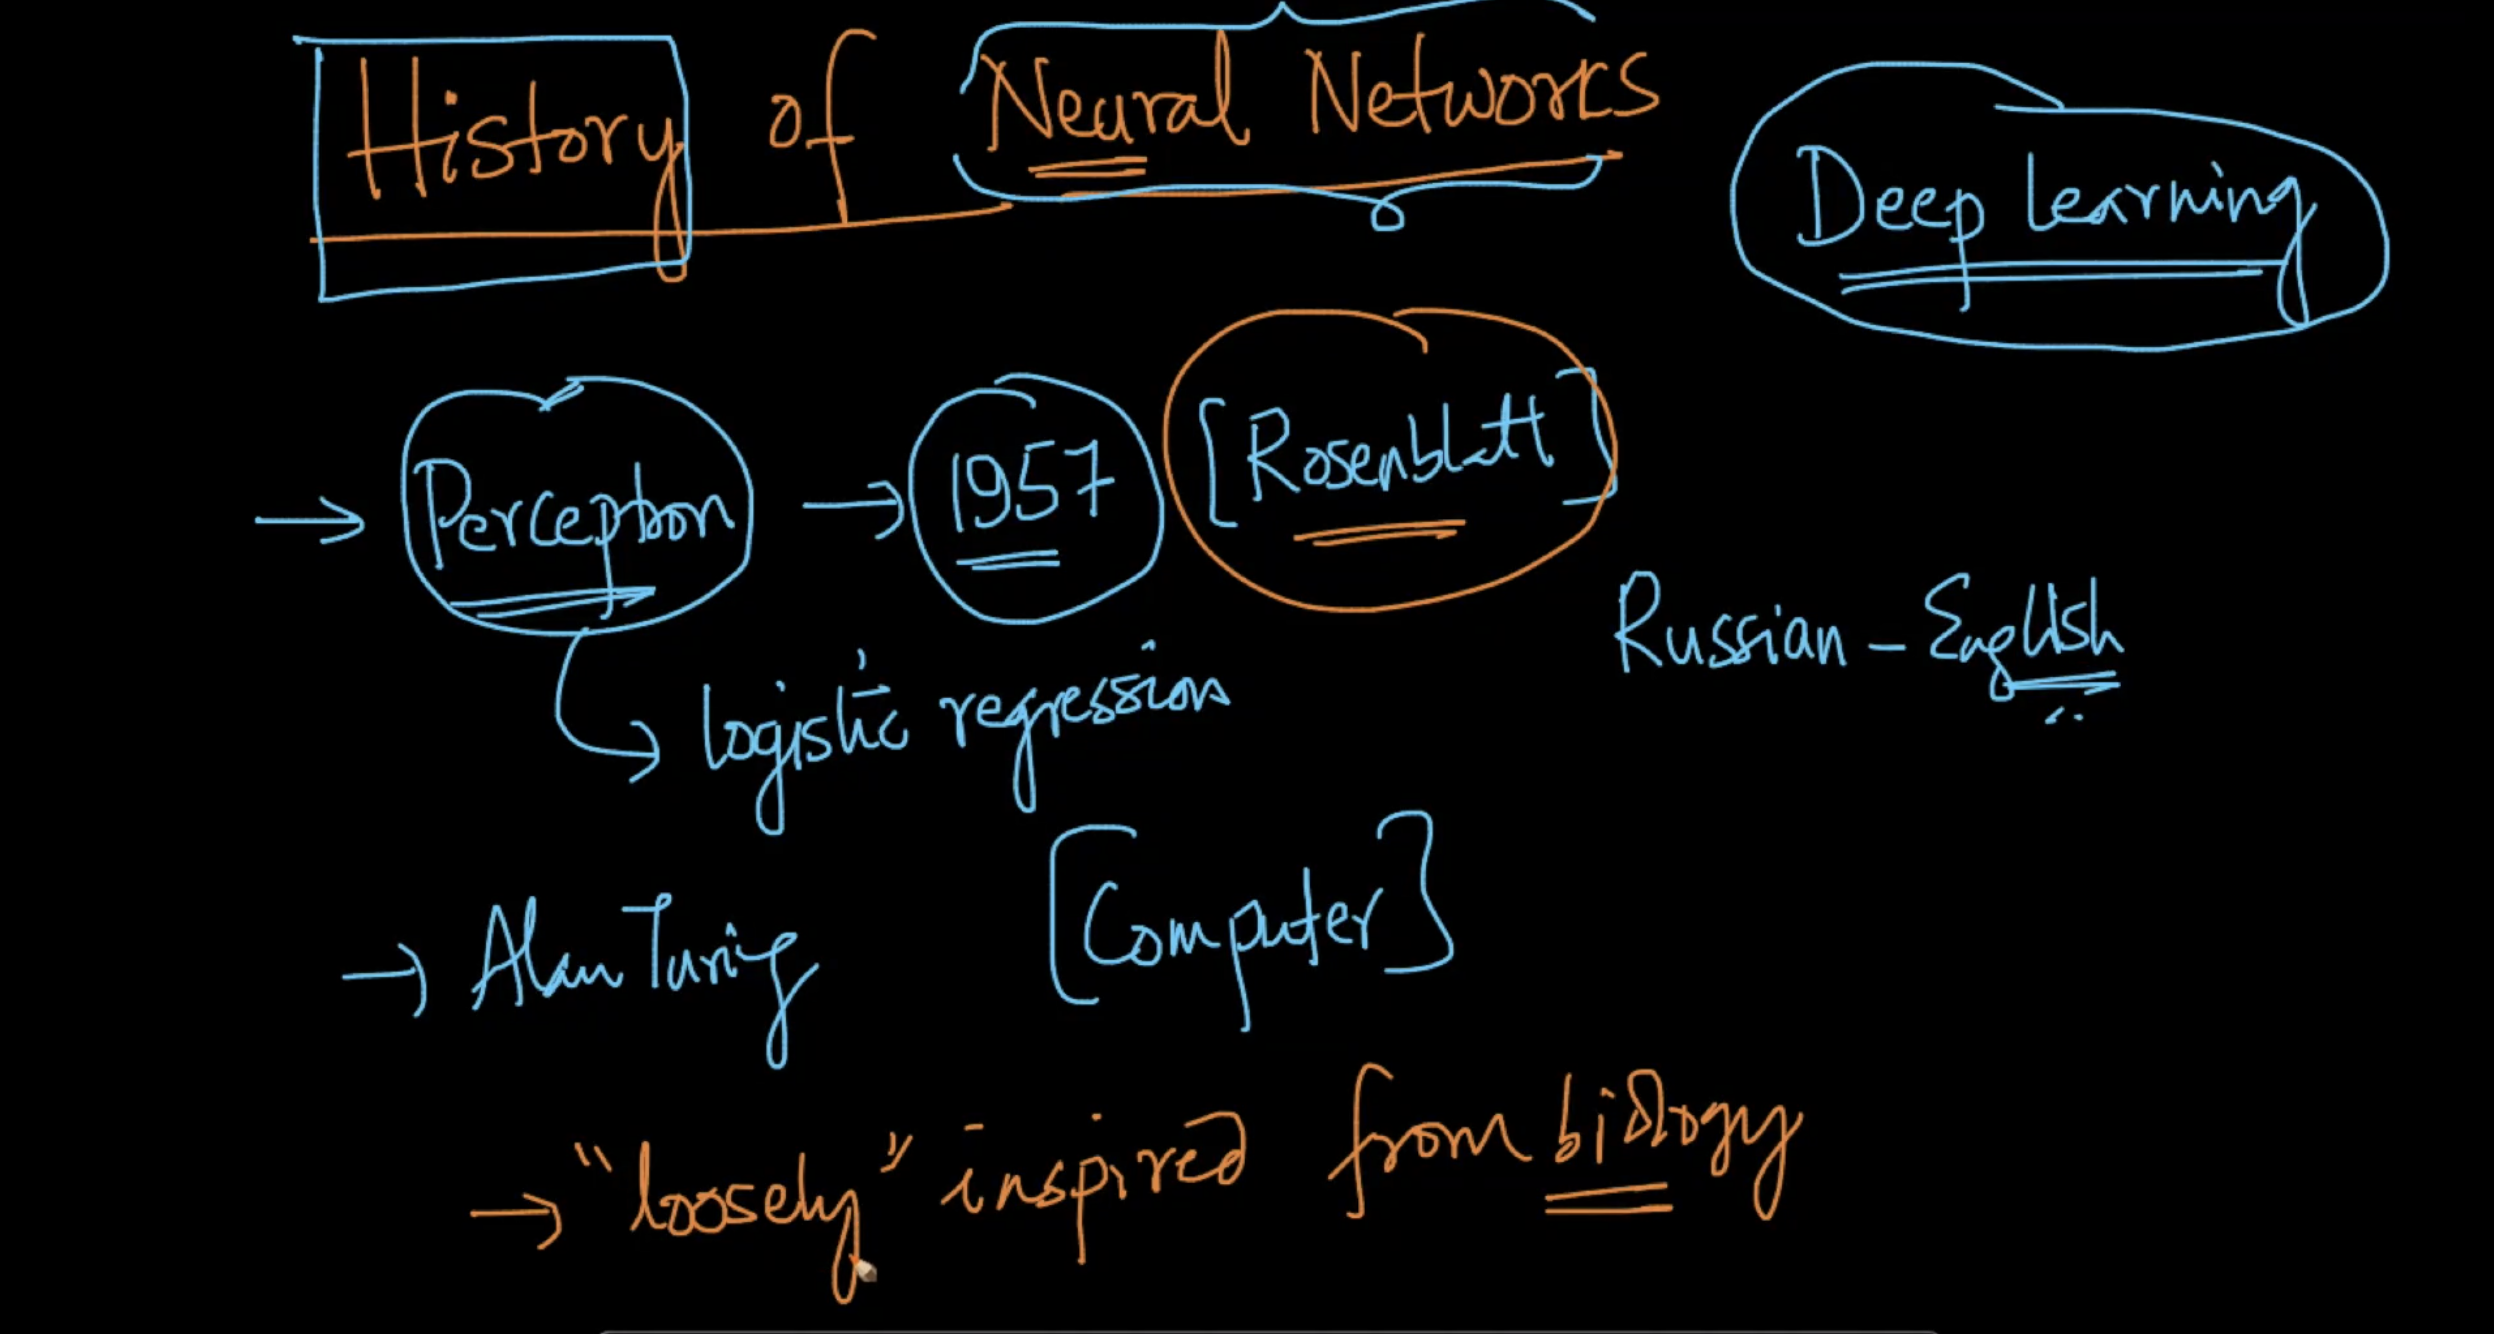 History of Neural Networks
Deep Learning
→ Perceptron → 1957 [Rosenblatt]
Russian - English
→ logistic regression
→ Alan Turing [Computer]
→ "loosely" inspired from biology